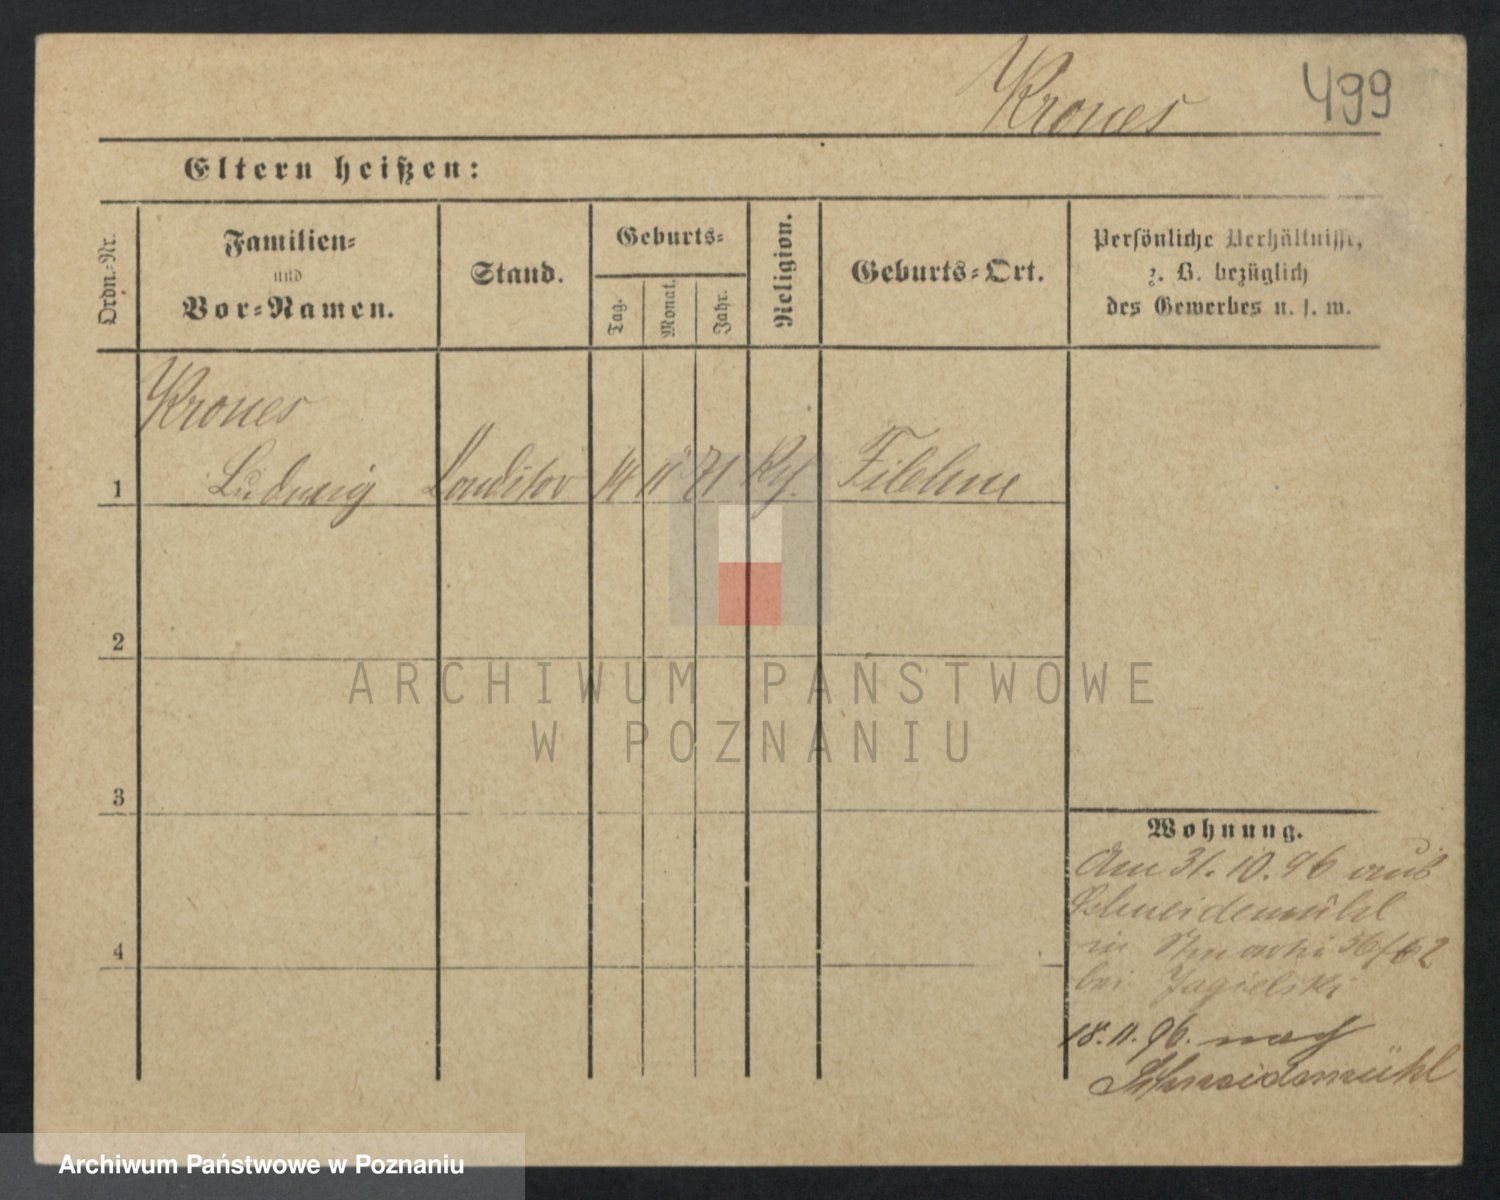 Krones
499
Eltern heißen:
Ordn.-Nr.
Familien-
und
Vor-Namen.
Stand.
Geburts-
Tag.
Monat.
Jahr.
Religion.
Geburts-Ort.
Persönliche Verhältnisse,
z. B. bezüglich
des Gewerbes u. s. w.
Krones
1 Ludwig Conditor 14 11 71 Filehne
2
3
4
ARCHIWUM PAŃSTWOWE
W POZNANIU
Wohnung.
Am 31.10.96 aus
Schneidemühl
in 56/62
bei Jagielski
18.11.96. nach
Schneidemühl
Archiwum Państwowe w Poznaniu